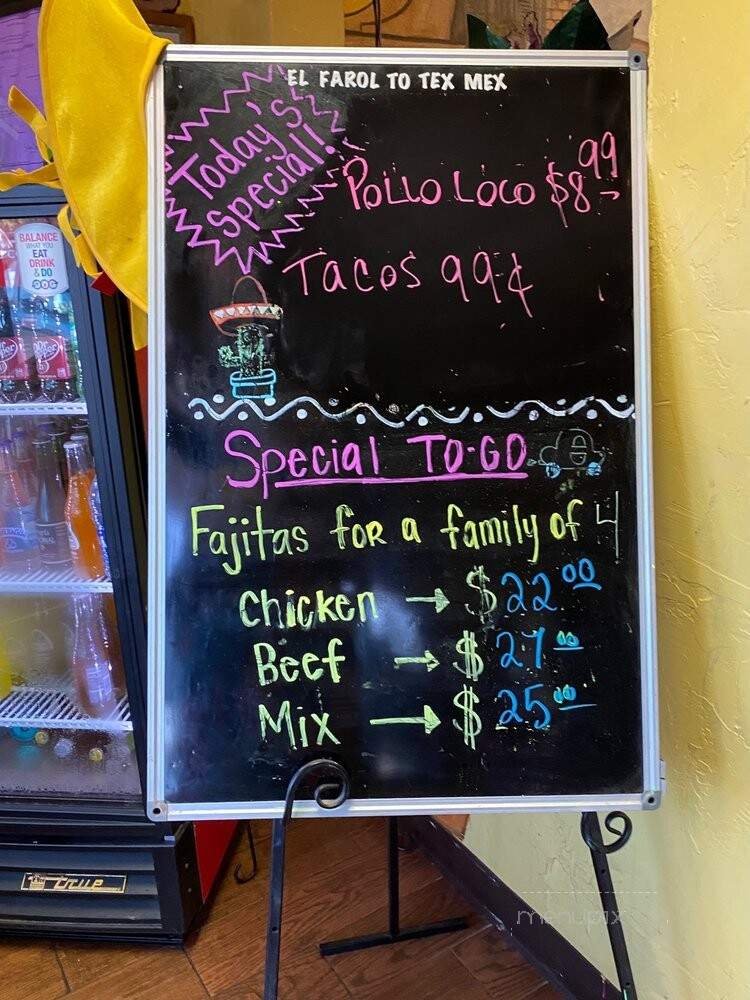 EL FAROL TO TEX MEX
Today's
Special!
POLLO LOCO $8.99
TACOS 99¢
Special TO-GO
Fajitas for a family of 4
Chicken → $22.00
Beef → $27.00
Mix → $25.00
BALANCE
WHAT YOU
EAT
DRINK
& DO
True
menupix